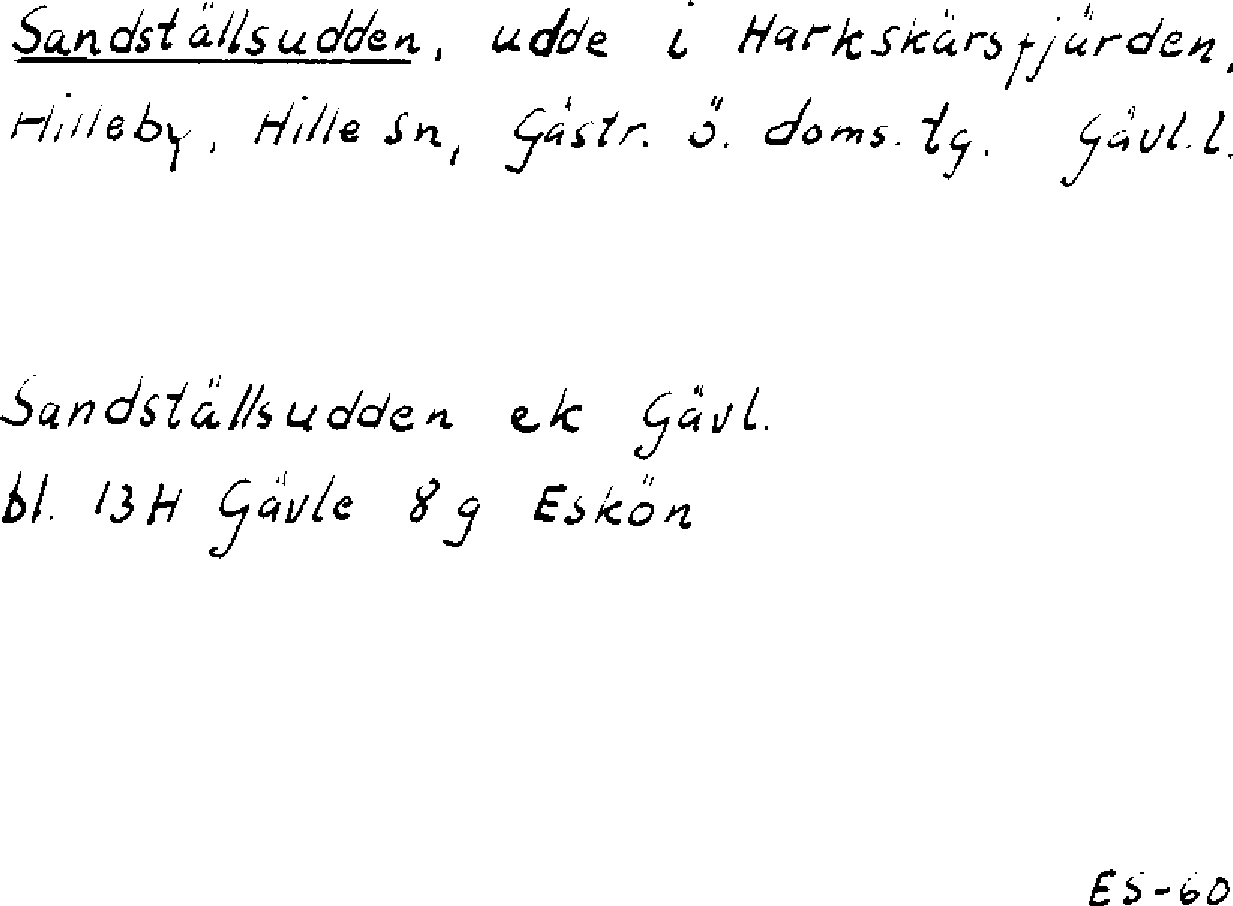 Sandställsudden, udde i Harkskärsfjärden,
Hilleby, Hille sn, Gästr. ö. doms. tg. Gävl. l.
Sandställsudden ek Gävl.
bl. 13H Gävle 8g Eskön
ES-60